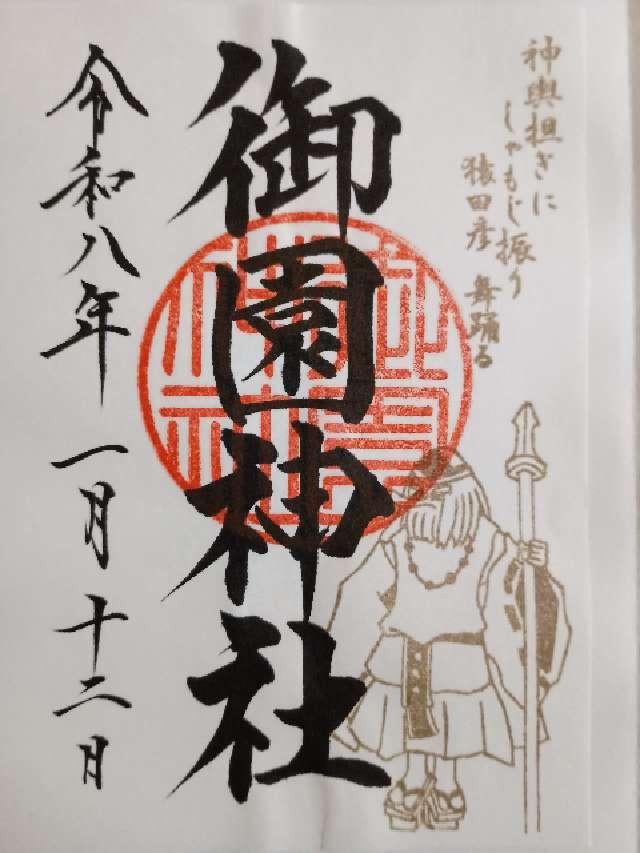 神輿担ぎに
しゃもじ振り
猿田彦 舞踊る
御園神社
令和八年 一月十二日